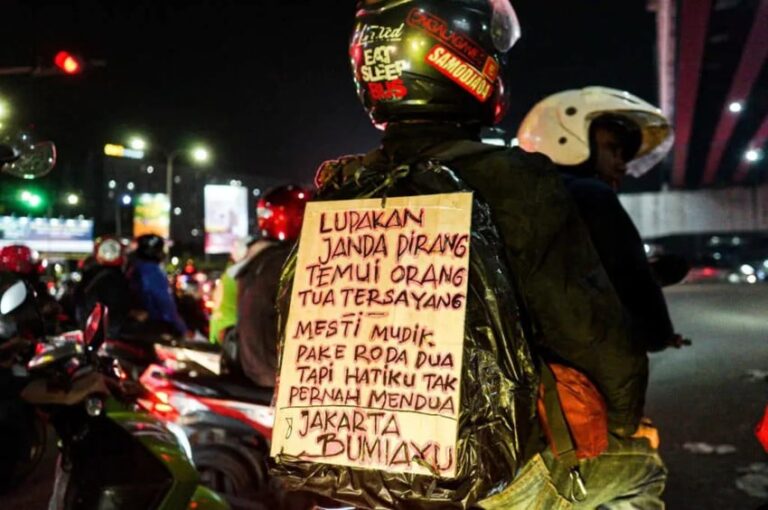 EAT
SLEEP
BUS
SAMODJADA
LUPAKAN
JANDA DIRANG
TEMUI ORANG
TUA TERSAYANG
MESTI MUDIK
PAKE RODA DUA
TAPI HATIKU TAK
PERNAH MENDUA
JAKARTA
BUMIAYU